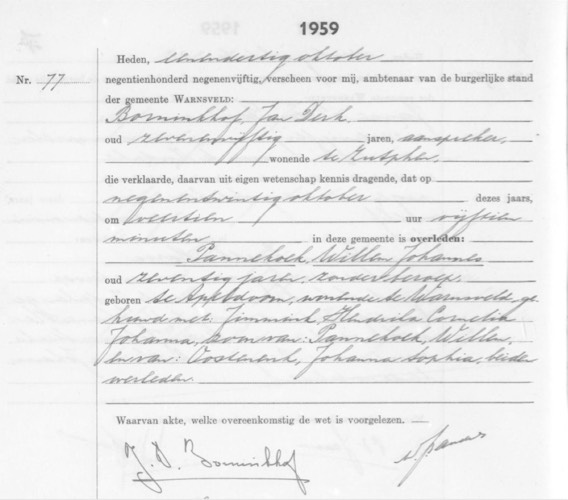 1959
Heden, eenendertig oktober
Nr. 77 negentienhonderd negenenvijftig, verscheen voor mij, ambtenaar van de burgerlijke stand
der gemeente WARNSVELD:
Borninkhof, Jan Derk,
oud zevenenvijftig jaren, aanspreker,
wonende te Zutphen,
die verklaarde, daarvan uit eigen wetenschap kennis dragende, dat op
negenentwintig oktober dezes jaars,
om veertien uur vijftien
minuten in deze gemeente is overleden:
Pannekoek, Willem Johannes
oud zeventig jaren, zonder beroep
geboren te Apeldoorn, wonende te Warnsveld, ge-
huwd met: Jimmink, Hendrika Cornelia
Johanna, zoon van: Pannekoek, Willem,
en van: Oosterenk, Johanna Sophia, beiden
overleden
Waarvan akte, welke overeenkomstig de wet is voorgelezen.
J. D. Borninkhof